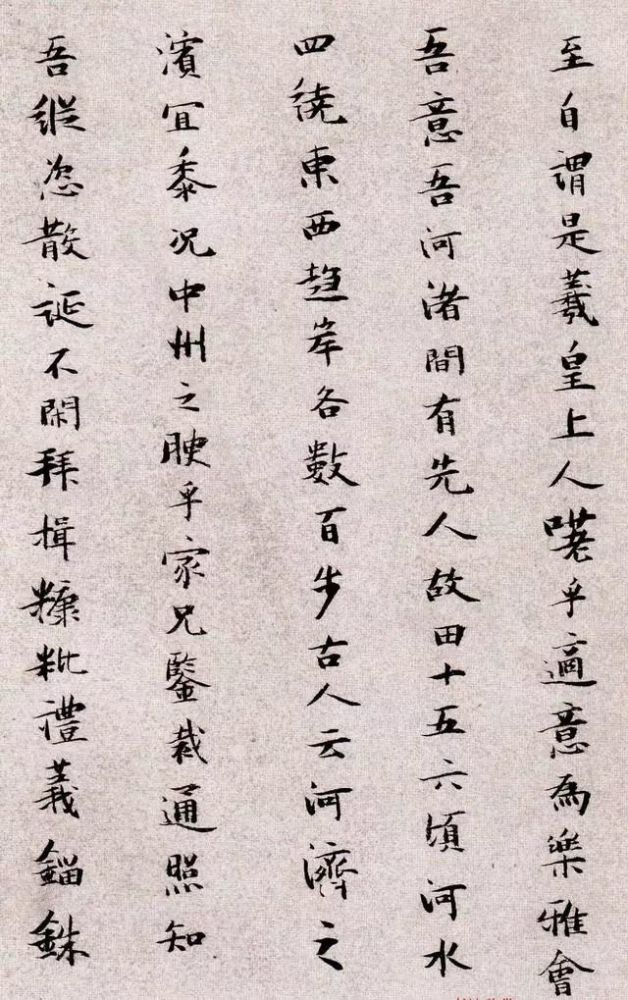 至自謂是羲皇上人嗟乎適意為樂雅會
吾意吾河渚間有先人故田十五六頃河水
四繞東西趨岸各數百步古人云河濟之
濱宜黍況中州之腴乎家兄鑒裁通照知
吾縱恣散誕不閑拜揖糠粃禮義錙銖